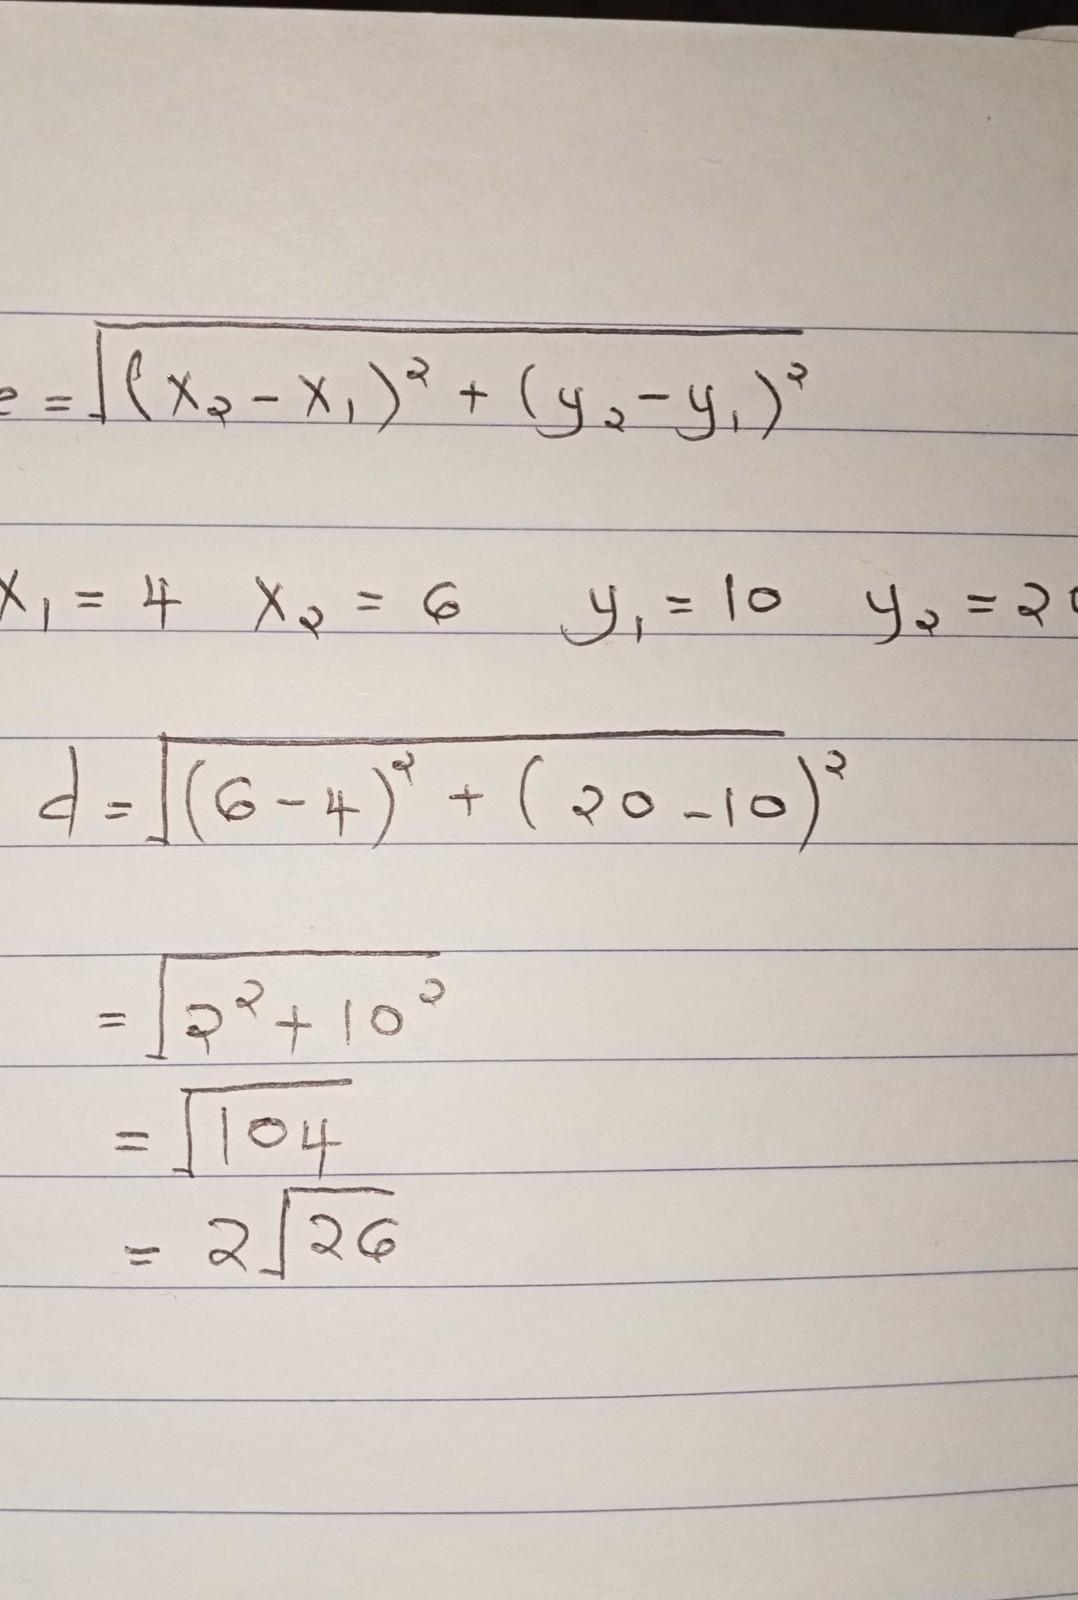 e = √(x₂ - x₁)² + (y₂ - y₁)²
x₁ = 4 x₂ = 6 y₁ = 10 y₂ = 20
d = √(6 - 4)² + (20 - 10)²
= √2² + 10²
= √104
= 2√26